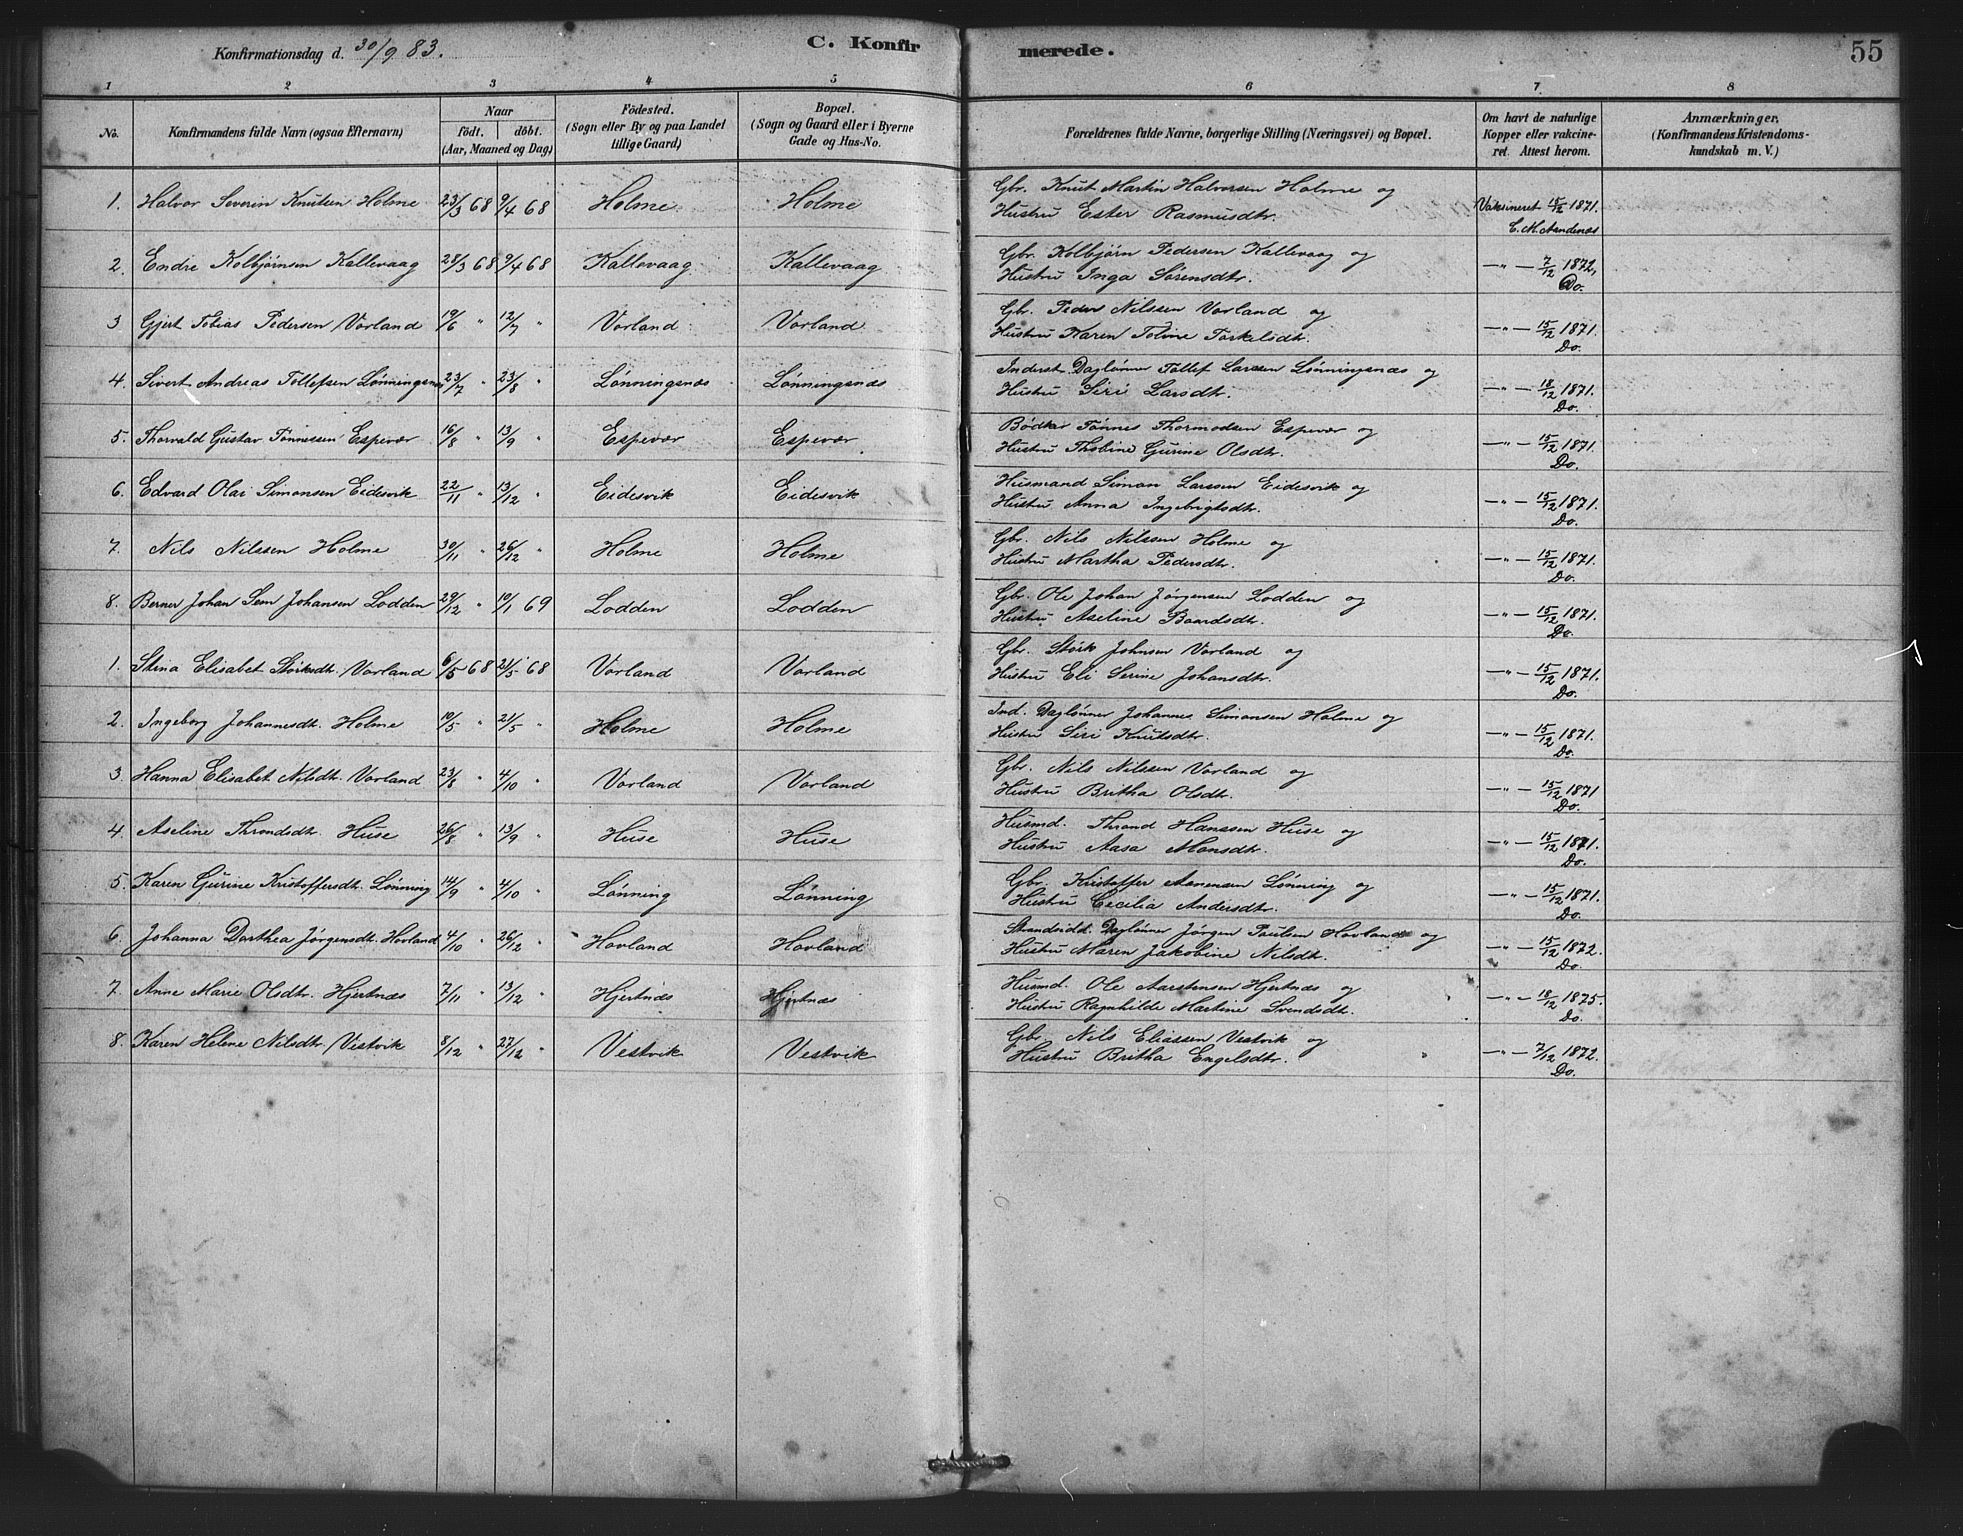 Konfirmationsdag d. 30/9 83.
C. Konfirmerede.
55
1 2 3 4 5 6 7 8
No.
Konfirmandens fulde Navn (ogsaa Efternavn)
Naar
födt. döbt.
(Aar, Maaned og Dag)
Födested.
(Sogn eller By og paa Landet
tillige Gaard)
Bopæl.
(Sogn og Gaard eller i Byerne
Gade og Hus-No.
Forældrenes fulde Navne, borgerlige Stilling (Næringsvei) og Bopæl.
Om havt de naturlige
Kopper eller vakcine-
ret. Attest herom.
Anmærkninger.
(Konfirmandens Kristendoms-
kundskab m. V.)
1. Halvor Severin Knutsen Holme 23/3 68 9/4 68 Holme Holme Gbr. Knut Martin Halvorsen Holme og
Hustru Ester Rasmusdtr. Vaksineret 15/12 1871.
C. M. Aandenæs
2. Endre Kolbjørnsen Kallevaag 28/3 68 9/4 68 Kallevaag Kallevaag Gbr. Kolbjørn Pedersen Kallevaag og
Hustru Inga Sørensdtr. —"— 7/12 1872,
Do.
3 Gjert Tobias Pedersen Vorland 19/6 " 12/7 " Vorland Vorland Gbr. Peder Nilssen Vorland og
Hustru Karen Toline Torkelsdtr. —"— 15/12 1871.
Do.
4. Sivert Andreas Tollefsen Lønningsnæs 23/7 " 23/8 " Lønningsnæs Lønningsnæs Inderst Daglønner Tollef Larssen Lønningsnæs og
Hustru Siri Larsdtr. —"— 18/12 1871.
Do.
5. Thorvald Gustav Tønnessen Espevær 16/8 " 13/9 " Espevær Espevær Bødker Tønnes Thormodsen Espevær og
Hustru Thobine Gurine Olsdtr. —"— 15/12 1871.
Do.
6. Edvard Olai Simonsen Eidesvik 22/11 " 13/12 " Eidesvik Eidesvik Husmand Simon Larssen Eidesvik og
Hustru Anna Ingebrigtsdtr. —"— 15/12 1871.
Do.
7. Nils Nilssen Holme 30/11 " 26/12 " Holme Holme Gbr. Nils Nilssen Holme og
Hustru Martha Pedersdtr. —"— 15/12 1871.
Do.
8. Berner Johan Sem Johansen Lodden 29/12 " 10/1 69 Lodden Lodden Gbr. Ole Johan Jørgensen Lodden og
Hustru Aseline Baardsdtr. —"— 15/12 1871.
Do.
1. Stina Elisabet Størksdt. Vorland 6/5 68 21/5 68 Vorland Vorland Gbr. Størk Johnsen Vorland og
Hustru Eli Serine Johansdtr. —"— 15/12 1871.
Do.
2. Ingeborg Johannesdt. Holme 10/5 " 21/5 " Holme Holme Ind. Daglønner Johannes Simonsen Holme og
Hustru Siri Knutsdtr. —"— 15/12 1871.
Do.
3. Hanna Elisabet Nilsdt. Vorland 23/8 " 4/10 " Vorland Vorland Gbr. Nils Nilssen Vorland og
Hustru Britha Olsdtr. —"— 15/12 1871
Do.
4. Aseline Throndsdt. Huse 26/8 " 13/9 " Huse Huse Husmd. Thrond Hanssen Huse og
Hustru Aasa Monsdtr. —"— 15/12 1871.
Do.
5. Karen Gurine Kristoffersdt. Lønning 14/9 " 4/10 " Lønning Lønning Gbr. Kristoffer Aanensen Lønning og
Hustru Cecilia Andersdtr. —"— 15/12 1871.
Do.
6. Johanna Dorthea Jørgensdt. Hovland 4/10 " 26/12 " Hovland Hovland Strandsidd. Daglønner Jørgen Paulsen Hovland og
Hustru Maren Jakobine Nilsdt. —"— 15/12 1872.
Do.
7. Anne Marie Olsdtr. Hjertnæs 7/11 " 13/12 " Hjertnæs Hjertnæs Husmd. Ole Aarstensen Hjertnæs og
Hustru Ragnhilde Martine Svendsdt. —"— 18/12 1875.
Do.
8. Karen Helene Nilsdtr. Vestvik 8/12 " 27/12 " Vestvik Vestvik Gbr. Nils Eliassen Vestvik og
Hustru Britha Engelsdtr. —"— 7/12 1872.
Do.